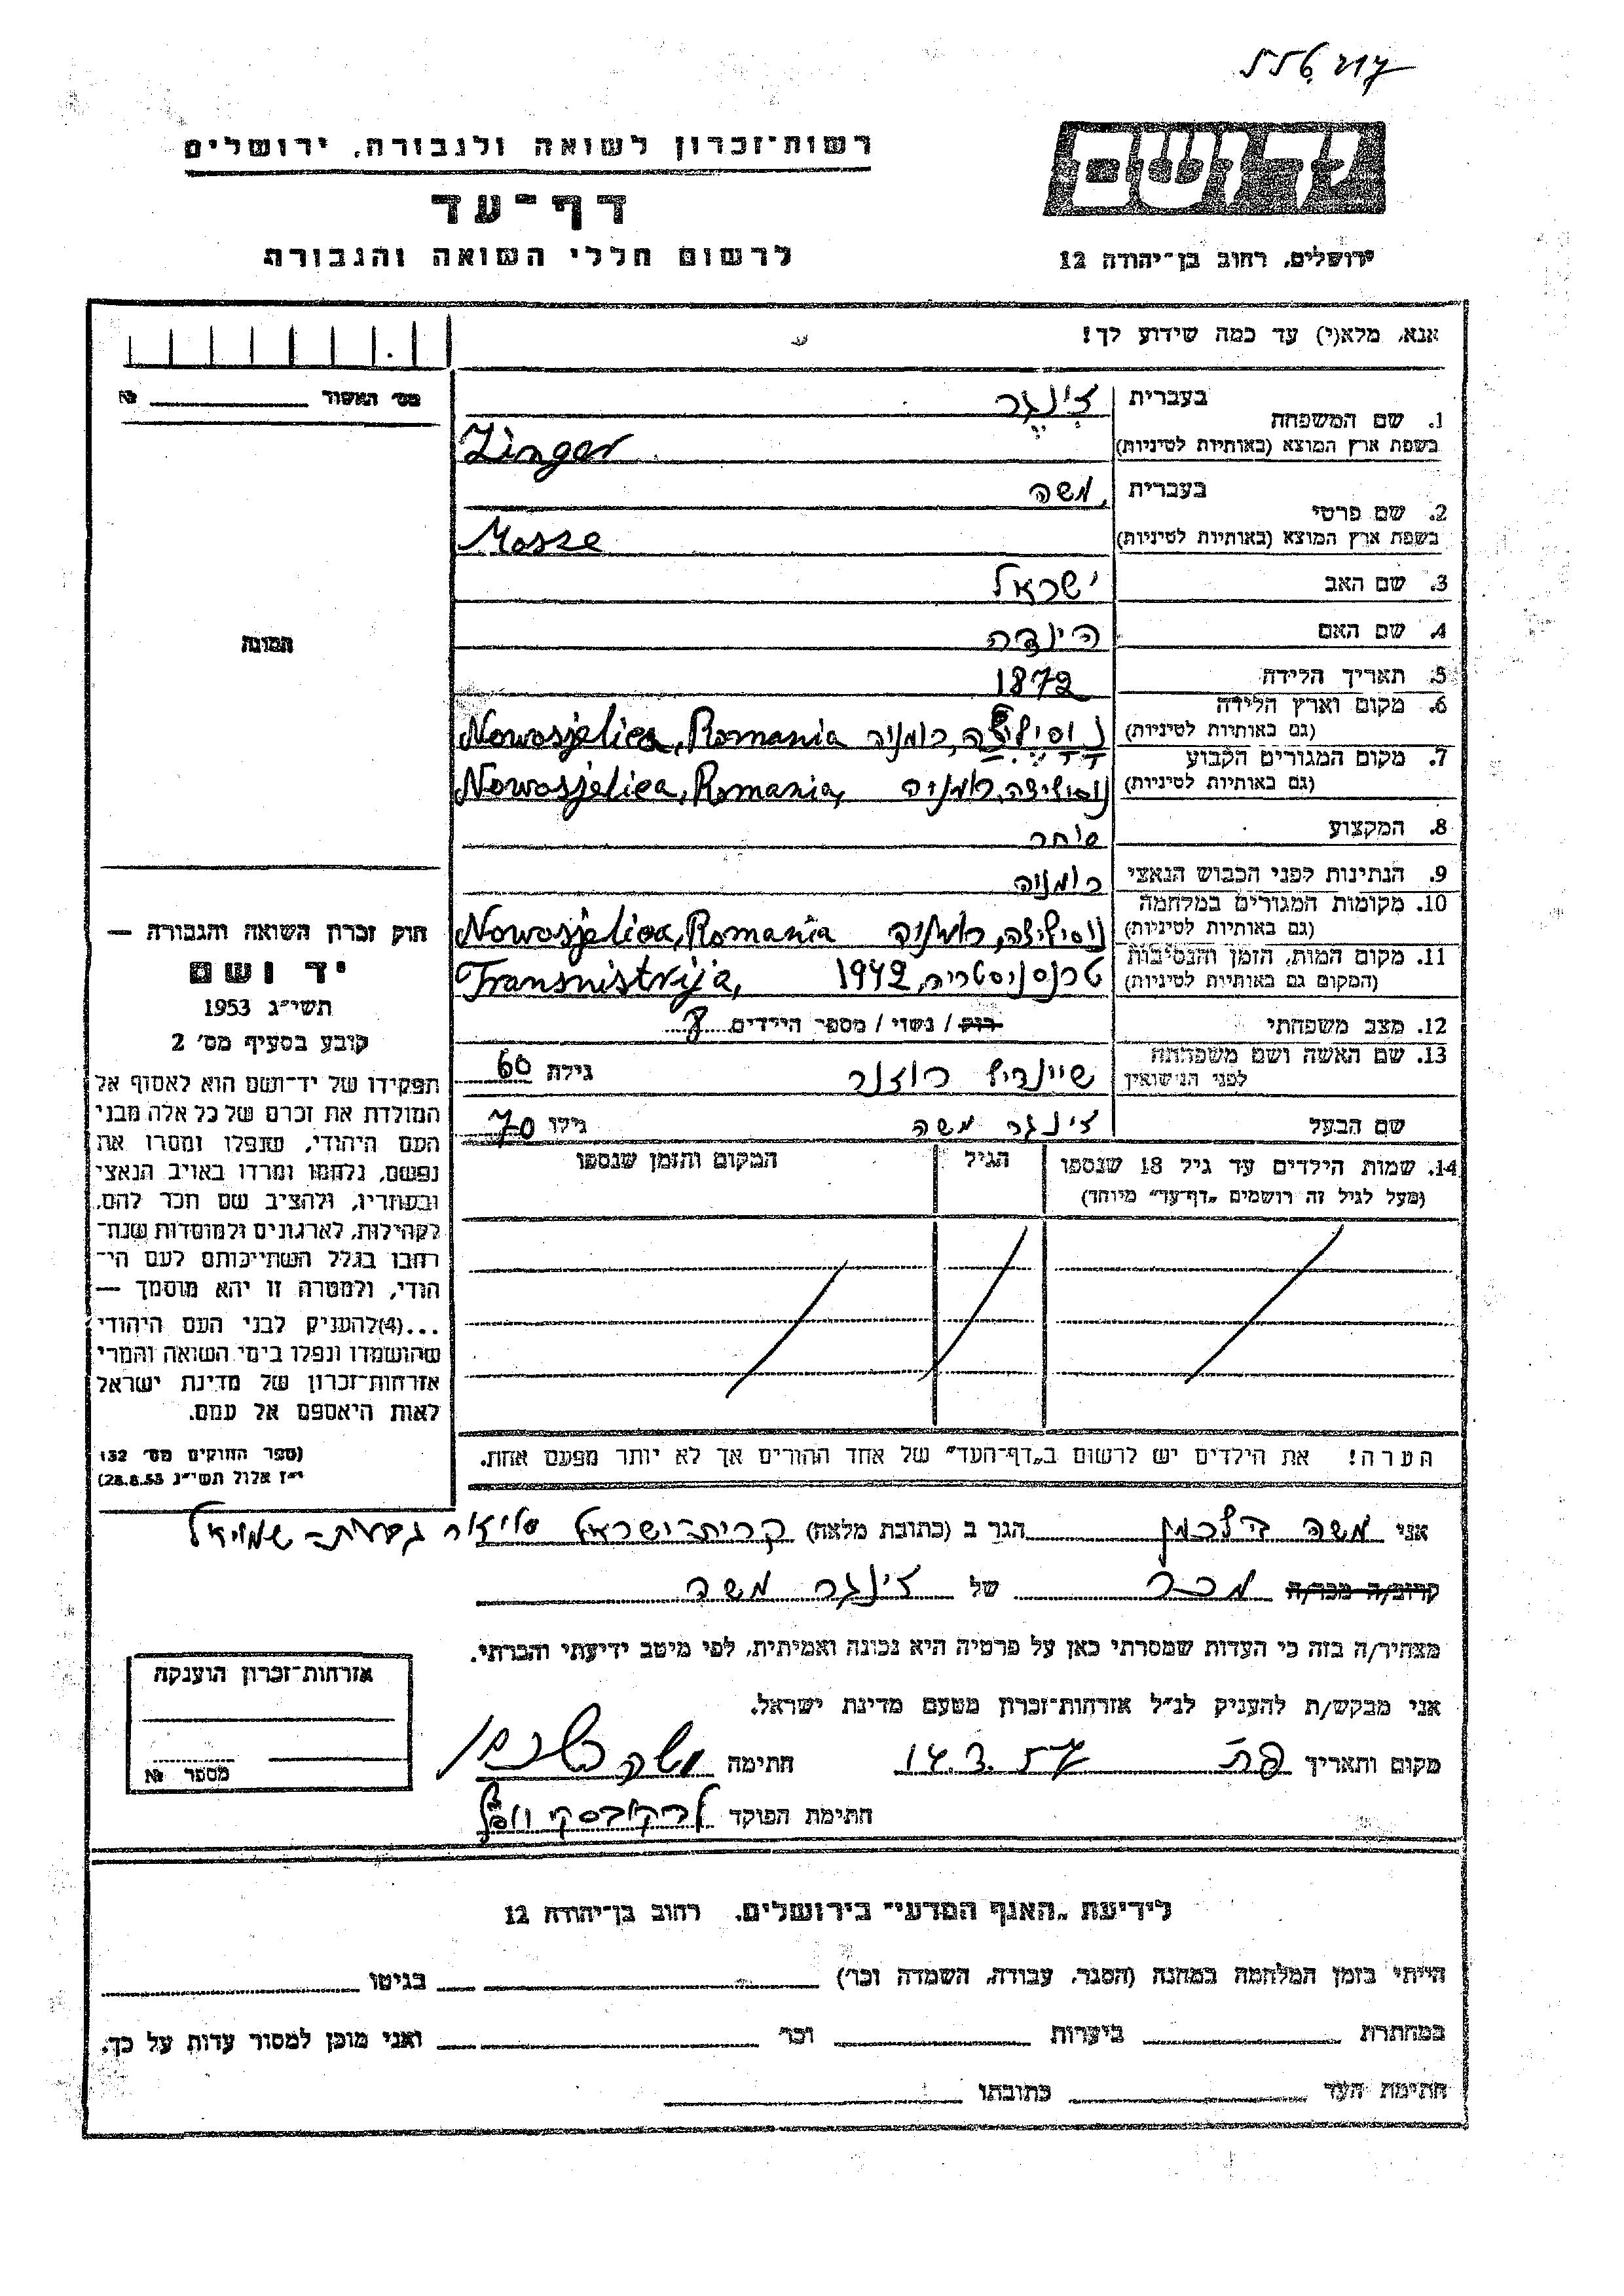 רשות־זכרון לשואה ולגבורה, ירושלים
דף־עד
לרשום חללי השואה והגבורה
יד ושם
ירושלים, רחוב בן־יהודה 12
אנא, מלא(י) עד כמה שידוע לך!
מס' האשור №
1. שם המשפחה בעברית צינגר
בשפת ארץ המוצא (באותיות לטיניות) Zinger
2. שם פרטי בעברית משה
בשפת ארץ המוצא (באותיות לטיניות) Mosze
3. שם האב ישראל
4. שם האם הינדה
5. תאריך הלידה 1872
6. מקום וארץ הלידה (גם באותיות לטיניות) נוסיליצה, רומניה Nowosjelica, Romania
7. מקום המגורים הקבוע (גם באותיות לטיניות) נוסיליצה, רומניה Nowosjelica, Romania,
8. המקצוע סוחר
9. הנתינות לפני הכבוש הנאצי רומניה
10. מקומות המגורים במלחמה (גם באותיות לטיניות) נוסיליצה, רומניה Nowosjelica, Romania
11. מקום המות, הזמן והנסיבות (המקום גם באותיות לטיניות) טרנסניסטריה, 1942 Transnistrija,
12. מצב משפחתי רוק / נשוי / מספר הילדים 8
13. שם האשה ושם משפחתה לפני הנישואין שיינדיל רוזנר גילה 60
שם הבעל צינגר משה גילו 70
14. שמות הילדים עד גיל 18 שנספו (מעל לגיל זה רושמים „דף־עד" מיוחד) הגיל המקום והזמן שנספו
הערה! את הילדים יש לרשום ב„דף־העד" של אחד ההורים אך לא יותר מפעם אחת.
תמונה
חוק זכרון השואה והגבורה —
יד ושם
תשי"ג 1953
קובע בסעיף מס' 2
תפקידו של יד־ושם הוא לאסוף אל
המולדת את זכרם של כל אלה מבני
העם היהודי, שנפלו ומסרו את
נפשם, נלחמו ומרדו באויב הנאצי
ובעוזריו, ולהציב שם וזכר להם,
לקהילות, לארגונים ולמוסדות שנח־
רבו בגלל השתייכותם לעם הי־
הודי, ולמטרה זו יהא מוסמך —
...(4) להעניק לבני העם היהודי
שהושמדו ונפלו בימי השואה והמרי
אזרחות־זכרון של מדינת ישראל
לאות היאספם אל עמם.
(ספר החוקים מס' 132
י"ז אלול תשי"ג 28.8.53)
אני משה הילרמן הגר ב (כתובת מלאה) קרית־ישראל גבעת־שמואל
קרוב/ה מכר/ה מכר של צינגר משה
מצהיר/ה בזה כי העדות שמסרתי כאן על פרטיה היא נכונה ואמיתית, לפי מיטב ידיעתי והכרתי.
אני מבקש/ת להעניק לנ"ל אזרחות־זכרון מטעם מדינת ישראל.
מקום ותאריך חתימה
חתימת הפוקד
אזרחות־זכרון הוענקה
מספר №
לידיעת „האגף המדעי" בירושלים, רחוב בן־יהודה 12
הייתי בזמן המלחמה במחנה (הסגר, עבודה, השמדה וכו') בגיטו
במחתרת ביערות וכו' ואני מוכן למסור עדות על כך.
חתימת העד כתובתו